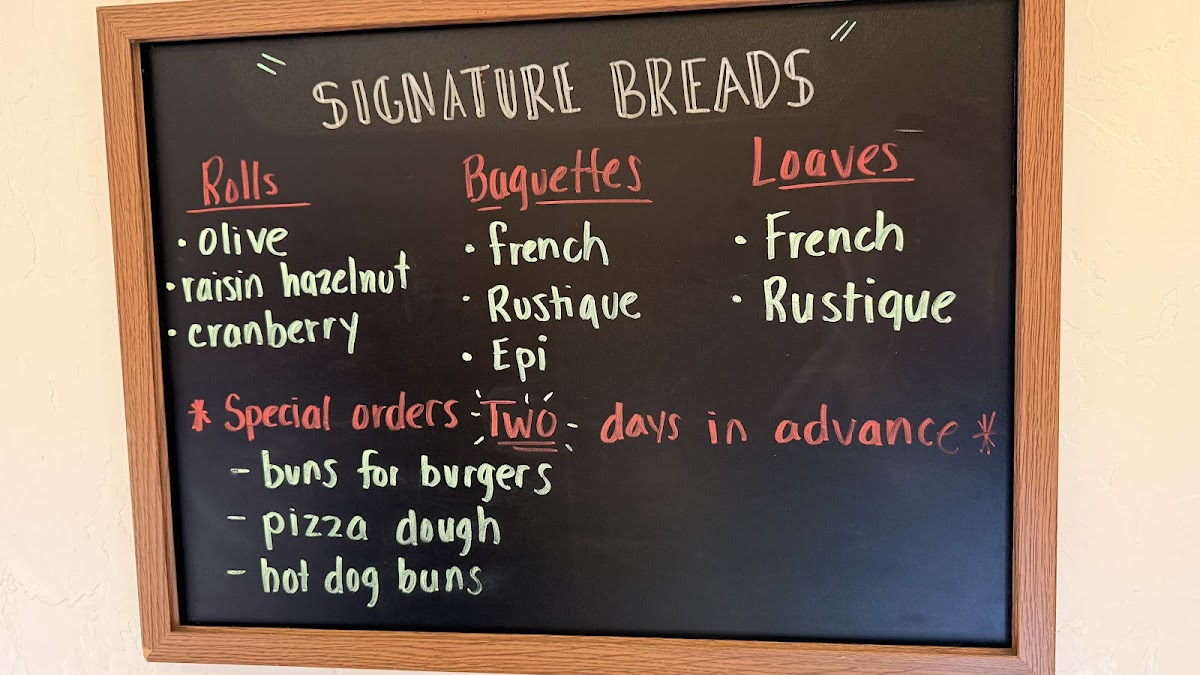 "SIGNATURE BREADS"
Rolls
• olive
• raisin hazelnut
• cranberry
Baguettes
• french
• Rustique
• Epi
Loaves
• French
• Rustique
* Special orders Two days in advance *
- buns for burgers
- pizza dough
- hot dog buns